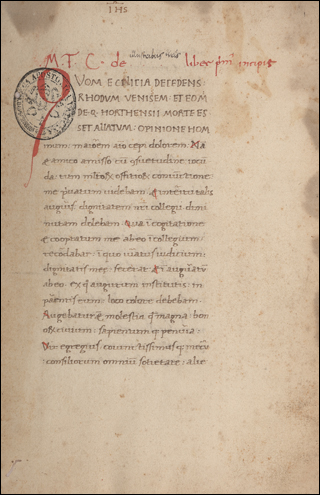 IHS
M. T. C. de liber prim' incipit
QVOM E CILICIA DECEDENS
RHODVM VENISEM · ET EOM
DE · Q · HORTHENSII MORTE ES
SET ALLATVM : OPINIONE HOM
num · maiorem aīo cepi dolorem · Na
& amico amisso cū ɔsuetudine iocū
da · tum ɔiūctione
me p̄uatum uidebam · & interitu talis
auguris dignitatem nr̄i collegii dimi
nutam dolebam · Qua ī cogitatione
& cooptatum me ab eo ī collegium
recordabar · ī quo iuratus iudicium
dignitatis mee fecerat · & ī auguratū
ab eo · ex q̄ augurum institutis in
parentis eum loco colere debebam ·
Augebatur & molestia q̄ magna bon
sapientum q; penuria ·
Vir egregius coniunctissimus q; mecū
consiliorum omniū societate · alie